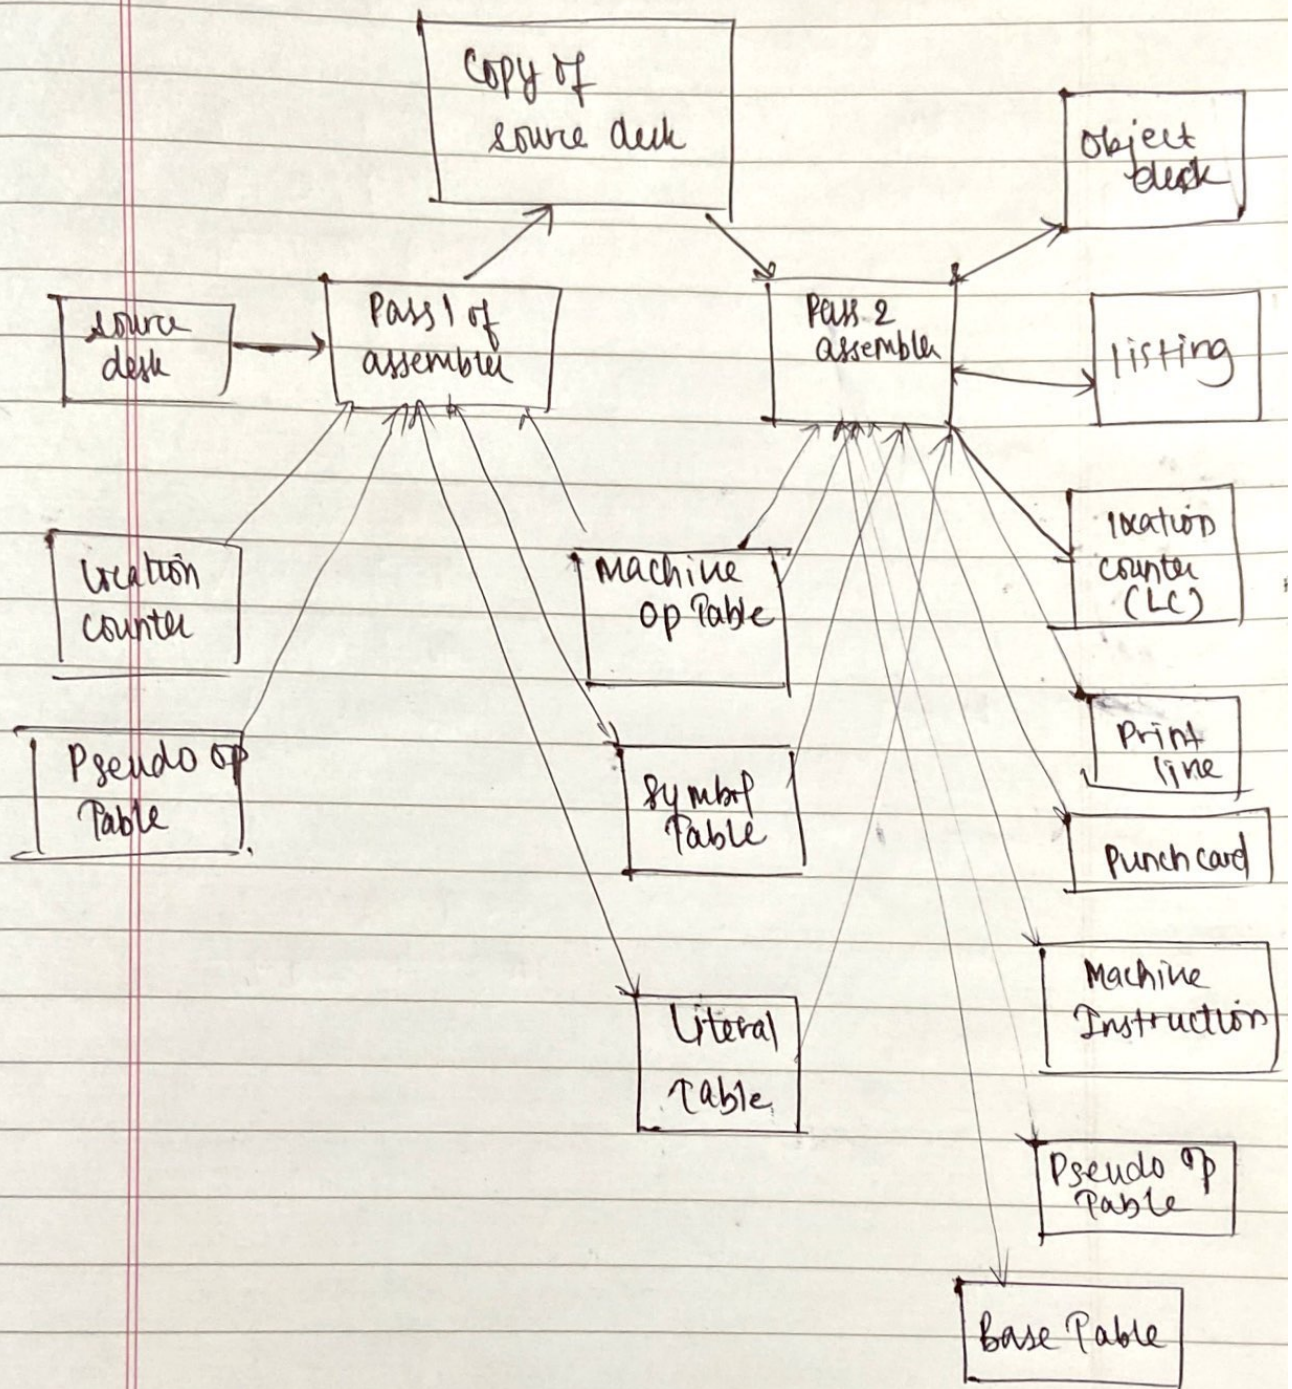 Copy of
source deck
Object
desk
source
desk
Pass 1 of
assembler
Pass 2
assembler
listing
location
counter
Machine
Op Table
location
counter
(LC)
Pseudo Op
Table
Symbol
Table
Print
line
Punch card
Literal
Table
Machine
Instruction
Pseudo Op
Table
Base Table